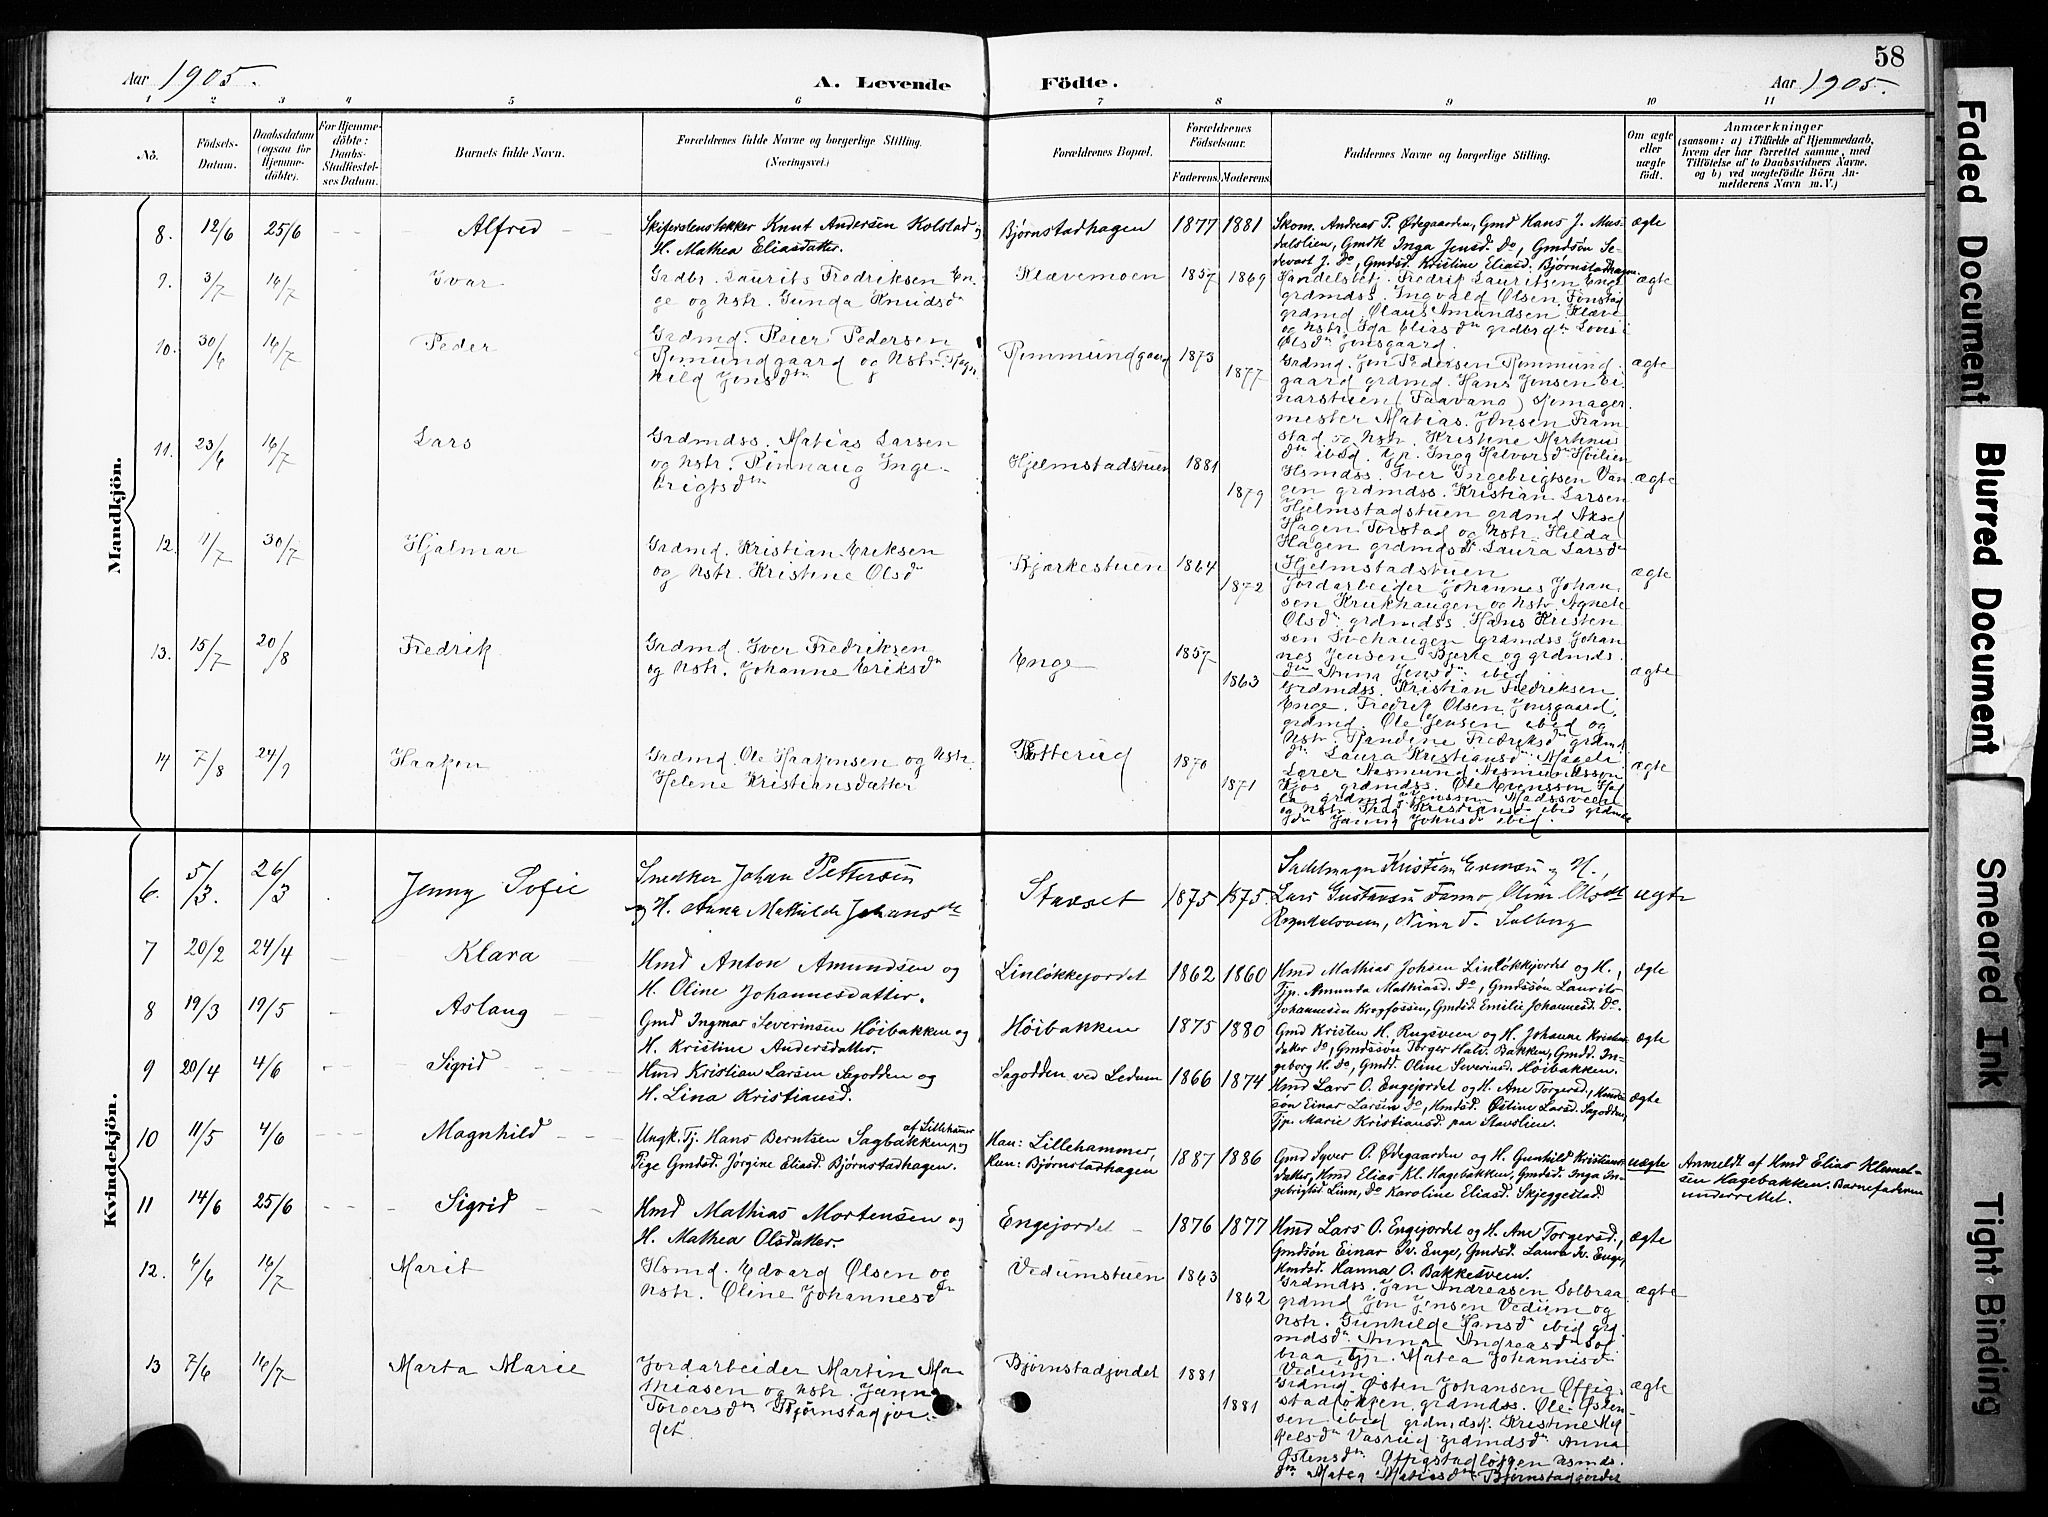 58
Aar 1905.
A. Levende Födte.
Aar 1905.
1 2 3 4 5 6 7 8 9 10 11
No.
Födsels-
Datum.
Daabsdatum
(ogsaa för
Hjemme-
döbte).
For Hjemme-
döbte:
Daabs-
Stadfæstel-
ses Datum.
Barnets fulde Navn.
Forældrenes fulde Navne og borgerlige Stilling.
(Næringsvei.)
Forældrenes Bopæl.
Forældrenes
Födselsaar.
Faderens.
Moderens.
Faddernes Navne og borgerlige Stilling.
Om ægte
eller
uægte
födt.
Anmærkninger
(saasom: a) i Tilfælde af Hjemmedaab,
hvem der har forrettet samme, med
Tilföielse af to Daabsvidners Navne,
og b) ved uægtefödte Börn An-
melderens Navn m. V.)
Mandkjön.
8. 12/6 25/6 Alfred
Skiferstenstekker Knut Andersen Kolstad og
H. Mathea Eliasdatter.
Bjørnstadhagen 1877 1881
Skom. Andreas P. Ødegaarden, Gmd Hans J. Mus-
dalslien, Gmdk Inga Jensd. Do, Gmdsøn Se-
devart J. Do, Gmdsd. Kristine Eliasd. Bjørnstadhagen
ægte
9. 3/7 16/7 Ivar
Grdbr. Laurits Fredriksen En-
ge og Kstr. Gunda Knudsdtr
Klævemoen 1857 1869
Handelsbetj. Fredrik Lauritsen Enge
grdmdss. Ingvald Olsen Fonstad
grdmd Olaus Amundsen Klæve
og Kstr. Ida Eliasdtr grdbrdtr Lovise
Olsdtr Jonsgaard.
ægte
10. 30/6 16/7 Peder
Grdmd. Peier Pedersen
Romundgaard og Kstr. Ragn-
hild Jonsdtr
Rommundgaard 1873 1877
Grdmd. Jon Pedersen Rommund-
gaard grdmd. Hans Jonsen Ei-
narstuen (Faavang) Skomager-
mester Matias Jonsen Fram-
stad og Kstr. Kristine Martinus
dtr ibid. Tjp. Inga Halvorsdtr Hvilien
ægte
11. 23/6 16/7 Lars
Grdmdss. Matias Larsen
og Kstr. Rinnaug Inge-
brigtsdtr
Hjelmstadstuen 1881 1879
Hsmdss. Iver Ingebrigtsen Van-
gen grdmdss. Kristian Larsen
Hjelmstadstuen grdmd Aksel
Hagen Torstad og Kstr. Hilda
Hagen grdmdsd Laura Larsdtr
Hjelmstadstuen
ægte
12. 1/7 30/7 Hjalmar
Grdmd. Kristian Eriksen
og Kstr. Kristine Olsdtr
Bjerkestuen 1864 1872
Jordarbeider Johannes Johan-
sen Krukhaugen og Kstr. Agnete
Olsdtr grdmdss. Hans Kristen-
sen Svehaugen grdmdss Johan-
nes Jensen Bjerke og grdmds-
dtr Anna Jensdtr ibid
ægte
13. 15/7 20/8 Fredrik
Grdmd. Iver Fredriksen
og Kstr. Johanne Eriksdtr
Enge 1857 1863
Grdmdss. Kristian Fredriksen
Enge. Fredrik Olsen Jonsgaard.
grdmd. Ole Jensen ibid og
Kstr. Randine Fredriksdtr grdmd.
dtr Laura Kristiansdtr Mageli
ægte
14 7/8 24/9 Haakon
Grdmd Ole Haakensen og Kstr.
Helene Kristiansdatter
Rotterud 1870 1871
Lærer Aasmund Aasmundsson
Kjos grdmdss. Ole Evensson
grdmd Jenssen Madssveen
og Kstr. Thea Kristiansd ibid grdmds
dtr Janna Johnsdtr ibid.
ægte
Kvindekjön.
6. 5/3. 26/3 Jenny Sofie
Snedker Johan Pettersen
og H. Anna Mathilde Johansdtr
Stavset 1875 1875.
Sadelmager Kristian Evensen og H.,
Lars Gustavsen Famo, Oline Olsdtr
Rogndalsveen, Nina T. Solberg
ægte
7 20/2 24/4 Klara
Hmd Anton Amundsen og
H. Oline Johannesdatter.
Linløkkejordet 1862 1860
Hmd Mathias Johsen Linløkkjordet og H.,
Tjp. Amunda Mathiasd. Do, Gmdssøn Laurits
Johannesen Kropfossen, Gmdsd. Emilie Johannesd. Do.
ægte
8 19/3 19/5 Aslaug
Gmd Ingmar Severinsen Høibakken og
H. Kristine Andersdatter.
Høibakken 1875 1880
Gmd Kristen H. Rugsveen og H. Johanne Kristen-
datter Do, Gmdssøn Torger Halv. Bakken, Gmdsd. In-
geborg H. Do, Gmdsd. Oline Severinsd. Høibakken.
ægte
9 20/4 4/6 Sigrid
Hmd Kristian Larsen Sagodden og
H. Lina Kristiansd.
Sagodden ved Ledum 1866 1874
Hmd Lars O. Engejordet og H. Ane Torgersd., Hmds-
søn Einar Larsen Do, Hmdsd. Østine Larsd. Sagodden,
Tjp. Marie Kristiansd. paa Stavslien.
ægte
10 11/5 4/6 Magnhild
Ungk. Tj. Hans Berntsen Sagbakken af Lillehamer og
Pige Gmdsd. Jørgine Eliasd. Bjørnstadhagen.
Han: Lillehammer,
Hun: Bjørnstadhagen 1887 1886
Gmd Syver O. Ødegaarden og H. Gunhild Kristians-
datter, Hmd Elias Kl. Hagebakken, Gmdsd. Inga In-
gebrigtsd Linn, Do Karoline Eliasd. Skjeggestad.
uægte
Anmeldt af Hmd Elias Klemet-
sen Hagebakken. Barnefaderen
underrettet.
11 14/6 25/6 Sigrid
Hmd Mathias Mortensen og
H. Mathea Olsdatter.
Engejordet 1876 1877
Hmd Lars O. Engejordet og H. Ane Torgersd.,
Gmdsøn Einar Iv. Enge, Gmdsd. Laura Iv. Enge,
Hmdsd. Hanna O. Bakkesveen.
ægte
12. 6/6 16/7 Marit
Hsmd. Edvard Olsen og
Kstr. Oline Johannesdtr
Vedumstuen 1863 1862
Grdmdss. Jan Andreasen Solbraa
grdmd Jon Jensen Vedum og
Kstr. Gunhilde Hansdtr ibid grd-
mdsdtr Anna Andreasdtr Sol-
braa, Tjp. Matea Johannesdtr
Vedum.
ægte
13 7/6 16/7 Marta Marie
Jordarbeider Martin Ma-
thiasen og Kstr. Janna
Torgersdtr Bjørnstadjor-
det.
Bjørnstadjordet 1881 1881
Grdmd. Østen Johansen Offig-
stadløkken, grdmdss. Ole Østen-
sen ibid grdmdsk. Kristine Mik-
kelsdtr Vasrud grdmdsdtr Anna
Østensdtr Offigstadløkken hsmds-
dtr Matea Matiasdtr Bjørnstadjordet
ægte
Faded Document
Blurred Document
Smeared Ink
Tight Binding